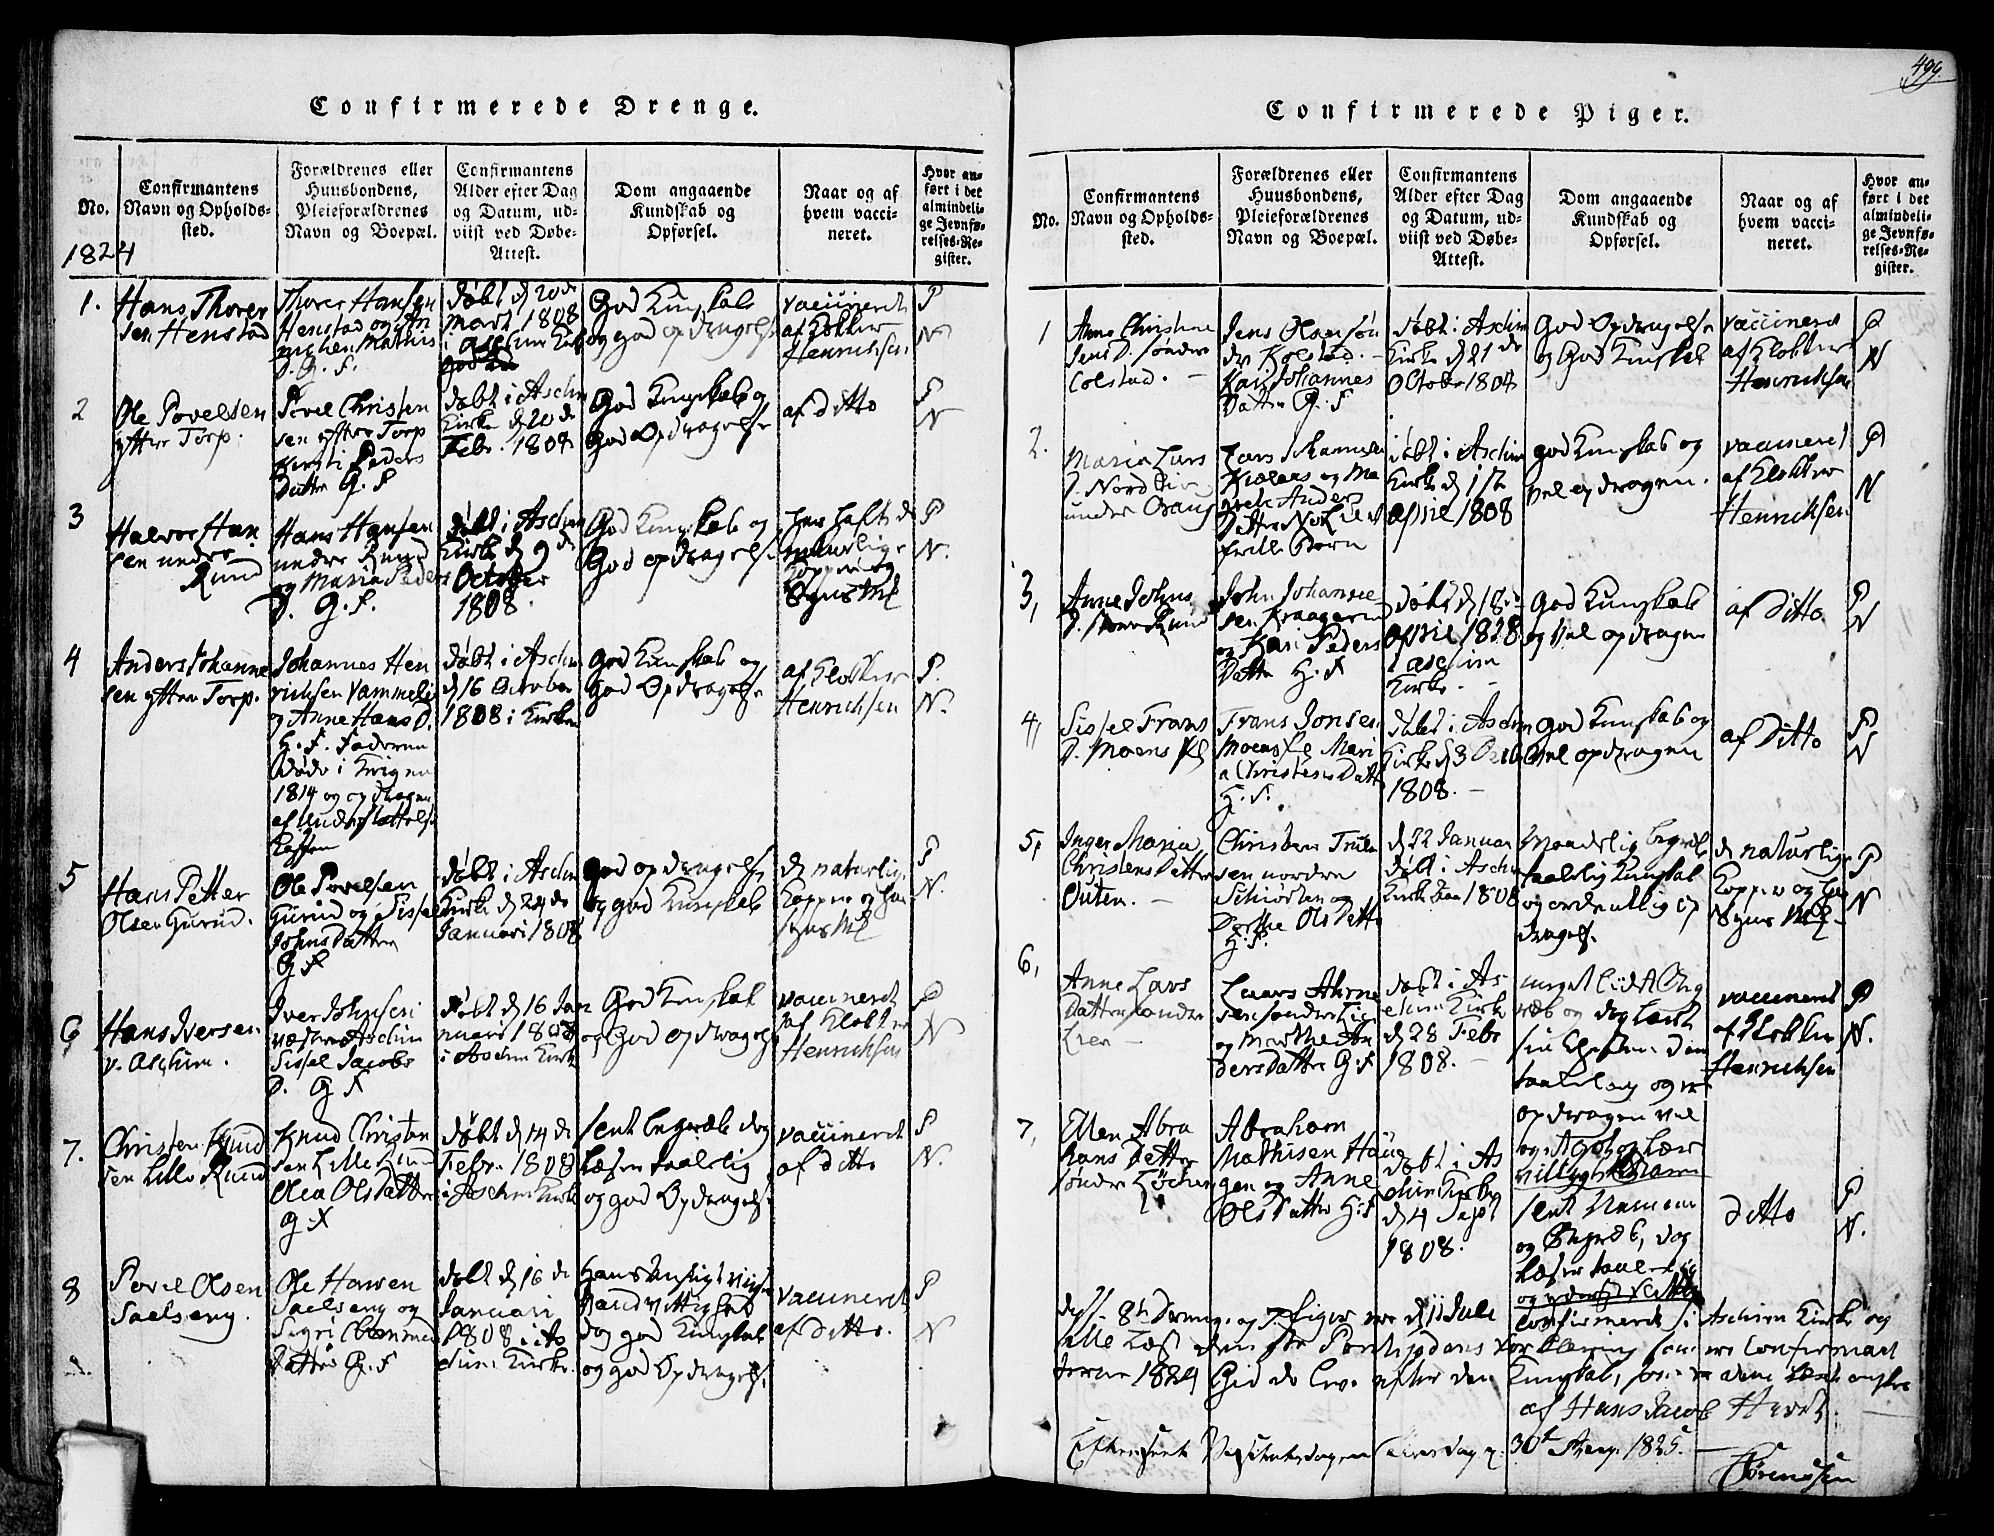 499
Confirmerede Drenge.
No.
Confirmantens
Navn og Opholds-
sted.
Forældrenes eller
Huusbondens,
Pleieforældrenes
Navn og Boepæl.
Confirmantens
Alder efter Dag
og Datum, ud-
viist ved Døbe-
Attest.
Dom angaaende
Kundskab og
Opførsel.
Naar og af
hvem vacci-
neret.
Hvor an-
ført i det
almindeli-
ge Jevnfø-
relses-Re-
gister.
1824
1.
Hans Thorer
sen Henstad
Thorer Hansen
Henstad og An
Mathis
D. G. F.
døbt d 20 de
Mart 1808
God Kunskab
og god opdragelse
vaccineret
af Klokker
Henrichsen
P
N
2
Ole Povelsen
yttre Torp.
Povel Christen
sen yttre Torp
Kirsti Peders
Datter G. F
døbt i Aschim
Kirke d 20 de
Febr. 1808
God Kunskab og
God Opdragelse
af ditto
P
N
3
Halvor Han
sen undre
Rund
Hans Hansen
undre Rund
og Maria Peders
D. G. F.
døbt i Aschim
Kirke d 9 de
October
1808.
God Kunskab og
God opdragelse
har haft de
naturlige
Kopper og
Synes Vel
P
N.
4
Anders Johanne
sen yttre Torp.
Johannes Hen
richsen Vammeli
og Anne Hans D.
H. F. Faderen
døde i Krigen
1814 og opdragen
af Understøttelse
Kassen
døbt i Aschim
d 16 October
1808 i Kirken
God Kunskab og
God Opdragelse
af Klokker
Henrichsen
P.
N.
5
Hans Petter
Olsen Gurud.
Ole Povelsen
Gurud og Sissel
Johns Datter
G F
døbt i Aschim
Kirke d 24 de
Januari 1808
God opdragelse
og god Kunskab
d naturlig
Kopper og har
synes Vel
P
N.
6
Hans Iversen
v. Aschim.
Iver Johnsen
vestre Aschim
Sissel Jacobs
D. G F
døbt d 16 Jan
nuari 1808
i Aschim Kirke
God Kunskab
og God opdragelse
vaccineret
af Klokker
Henrichsen
P
N
7.
Christen Knud
sen Lille Rund
Knud Christen
sen Lille Rund
Olea Ols Datter
G. F
døbt d 14 de
Febr. 1808
i Aschim Kirke
sent begreb dog
læser taalelig
og god Opdragelse
vaccineret
af ditto
P
N.
8
Povel Olsen
Saelseng.
Ole Hansen
Saelseng og
Sigri
Datter G. F
døbt d 16 de
Januari
1808 i As
chim Kirke.
dog god Kunskab
og god Opdragelse.
vaccineret
af ditto.
P
N
Confirmerede Piger.
No.
Confirmantens
Navn og Opholds-
sted.
Forældrenes eller
Huusbondens,
Pleieforældrenes
Navn og Boepæl.
Confirmantens
Alder efter Dag
og Datum, ud-
viist ved Døbe-
Attest.
Dom angaaende
Kundskab og
Opførsel.
Naar og af
hvem vacci-
neret.
Hvor an-
ført i det
almindeli-
ge Jevnfø-
relses-Re-
gister.
1
Anne Christine
Jens D. søndre
Colstad.
Jens Olsen søn
dre Kolstad.
Kari Johannes
Datter G. F
døbt i Aschim
Kirke d 21 de
October 1807
God Opdragelse
og God Kunskab
vaccineret
af Klokker
Henrichsen
P
N
2.
Maria Lars
D. Nord
under
Lars
og Ma
Anders
Datter
døbt i Aschim
Kirke d 17
April 1808
god Kunskab og
vel opdragen.
vaccineret
af Klokker
Henrichsen
P
N
3,
Anne Johns
D.
John Johanne
sen Kraageru
og Kari Peders
Datter H. F
døbt d 18 de
April 1828
i Aschim
Kirke.
God Kunskab
og vel opdragen
af ditto
P
N
4,
Sissel Frans
D. Moens
Frans Jonsen
Moens Mari
a Christens Datt
H. F.
døbt i Aschim
Kirke d 3
1808.
God Kunskab og
vel opdragen
af ditto
P
N
5,
Inger Maria
Christens Datter
Outen.
Christen Truls
sen nordre
Schiørten og
Dorthe Ols Datter
H. F.
d 22 Januar
døbt i Aschim
Kirke 1808
Maadelig begreb
taalelig Kunskab
og ordentlig op
dragelse.
de naturlige
Kopper og har
Synes Vel
P
N
6,
Anne Lars
Datter søndre
Lier
Laars Ahrne
sen søndre Lie
og Marthe An
dersDatter G. F
døbt i As
chim Kirke
d 28 Febr
1808.
meget lidet Beg
reb og dog lært
sin Christendom
taalelig og er
opdragen vel
vaccineret
af Klokker
Henrichsen
P
N.
7,
Ellen Abra
hams Datter
søndre Løcken
Abraham
Mathisen Hau
gen og Anne
Ols Datter H. F
døbt i As
chim Kirke
d 4 Sept
1808.
sent Nemme
og Begreb, dog
læser taalelig
ditto
P
N.
disse 8te Drenge og 7 Piger ere d 11 Juli confirmerede i Aschim Kirke og
alle læst den Pontoppidans Forklaring
1824
Kunskab,
af Hans Jacob
Efterseet Visitatsdagen Tiirsdag d. 30te Aug. 1825.
Sørenssen